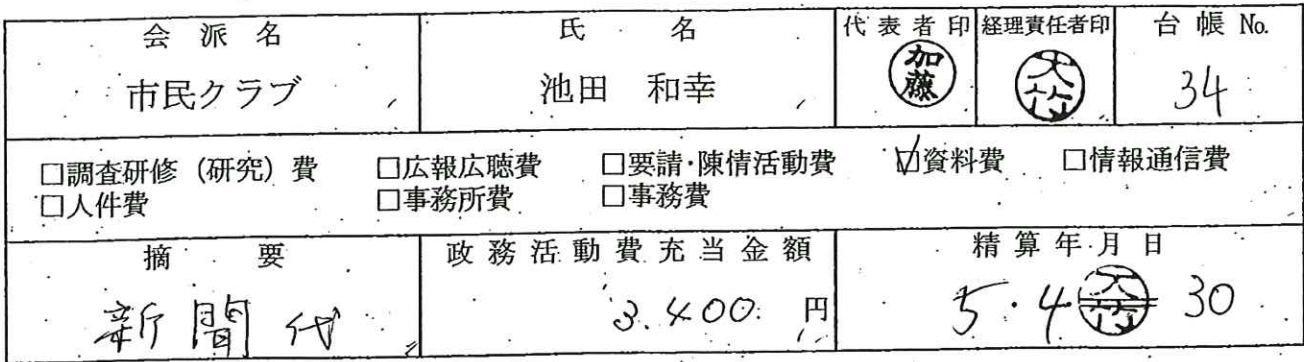 会派名 氏名 代表者印 経理責任者印 台帳No.
市民クラブ 池田 和幸 加藤 大竹 34
□調査研修(研究)費 □広報広聴費 □要請・陳情活動費 ☑資料費 □情報通信費
□人件費 □事務所費 □事務費
摘要 政務活動費充当金額 精算年月日
新聞代 3.400. 円 5.4 大竹 30